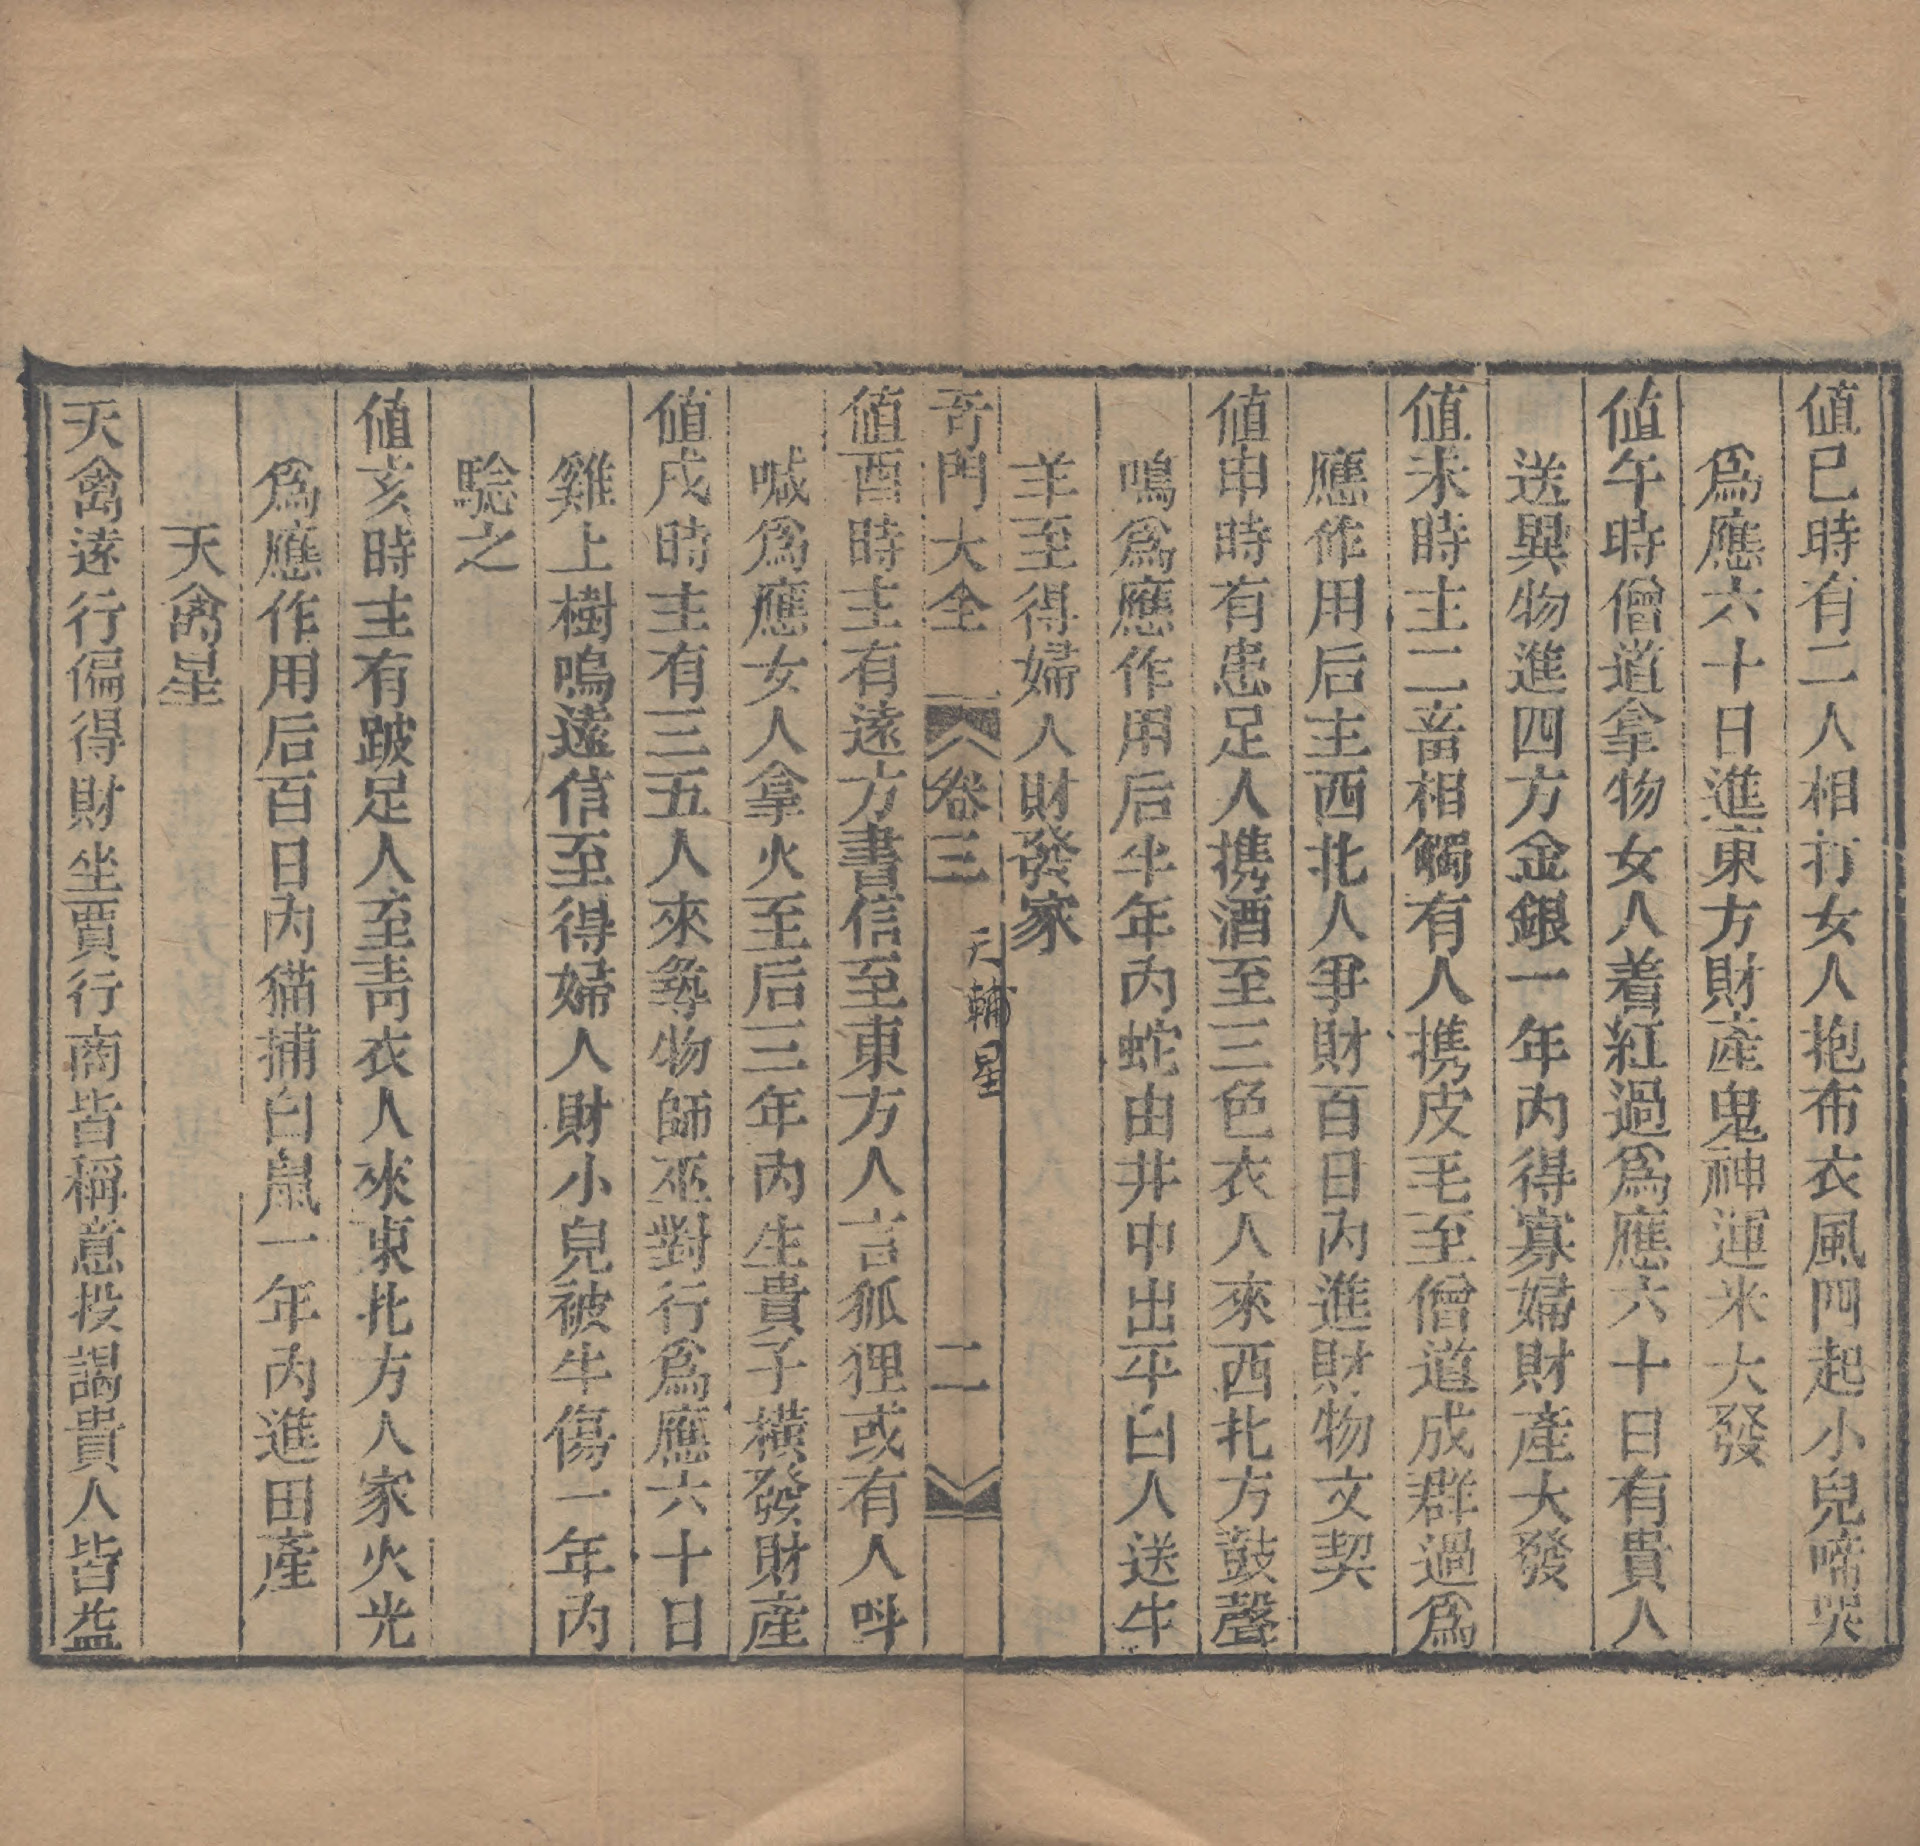 值巳時有二人相打女人抱布衣風四起小兒啼哭
為應六十日進東方財產鬼神運米大發
值午時僧道拿物女人着紅過為應六十日有貴人
送異物進四方金銀一年內得寡婦財產大發
值未時主二畜相觸有人携皮毛至僧道成群過為
應作用后主西北人爭財百日內進財物文契
值申時有患足人携酒至三色衣人來西北方鼓聲
鳴為應作用后半年內蛇由井中出平白人送牛
羊至得婦人財發家
奇門大全 卷三 天輔星 二
值酉時主有遠方書信至東方人言狐狸或有人呌
喊為應女人拿火至后三年內生貴子橫發財產
值戌時主有三五人來尋物師巫對行為應六十日
雞上樹鳴遠信至得婦人財小兒被牛傷一年內
驗之
值亥時主有跛足人至青衣人來東北方人家火光
為應作用后百日內猫捕白鼠一年內進田產
天禽星
天禽遠行偏得財坐賈行商皆稱意投謁貴人皆益